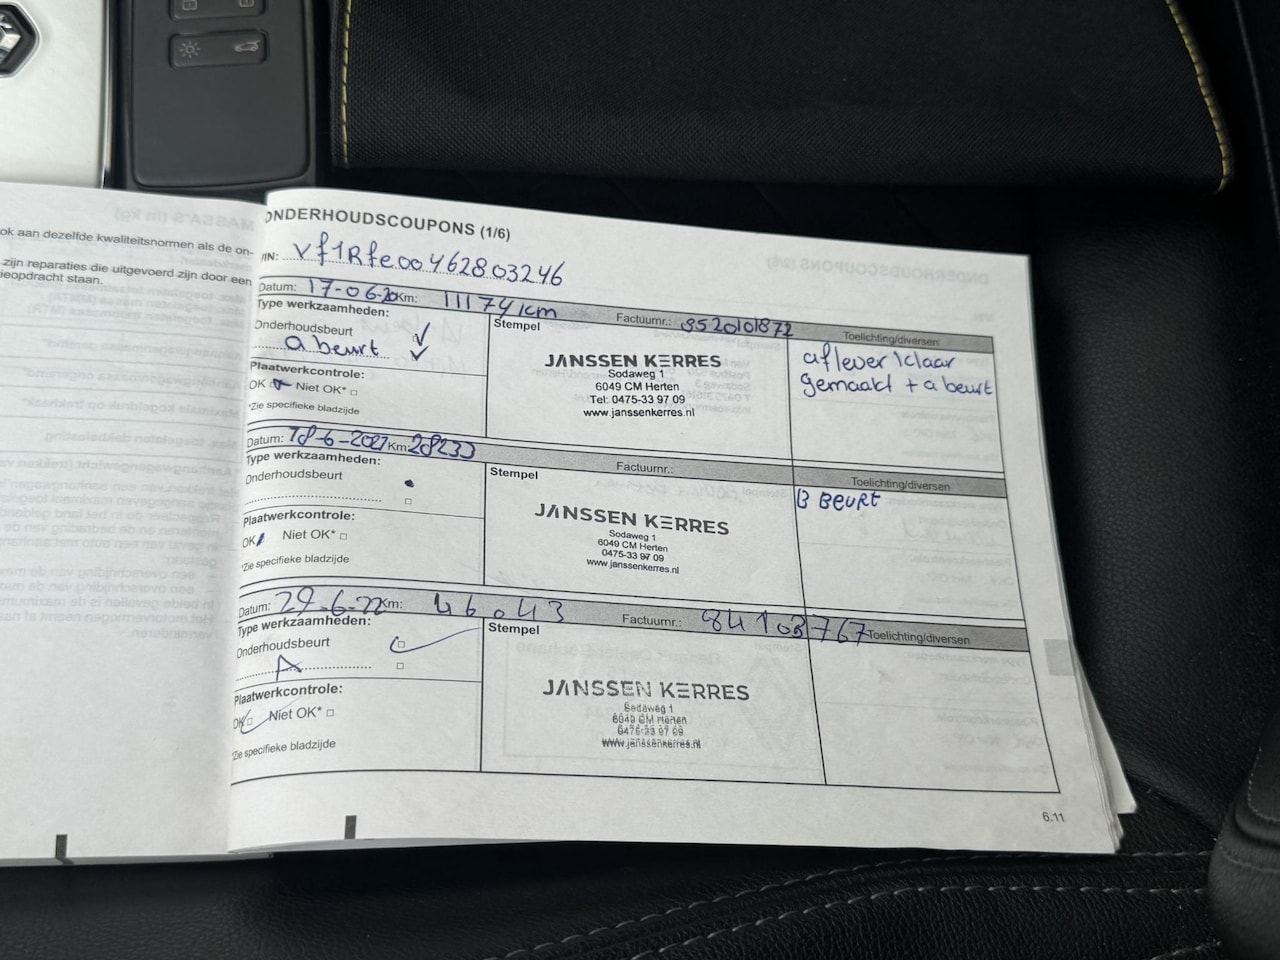 ok aan dezelfde kwaliteitsnormen als de on-
zijn reparaties die uitgevoerd zijn door een
ieopdracht staan.
ONDERHOUDSCOUPONS (1/6)
VIN: Vf1Rfe00462803246
Datum: 17-06-20 Km: 11174km Factuurnr.: 9520101872 Toelichting/diversen
Type werkzaamheden:
Onderhoudsbeurt
a beurt
Plaatwerkcontrole:
OK Niet OK*
*Zie specifieke bladzijde
Stempel
JANSSEN KERRES
Sodaweg 1
6049 CM Herten
Tel: 0475-33 97 09
www.janssenkerres.nl
aflever klaar
gemaakt + a beurt
Datum: 18-6-2021 Km: 28233 Factuurnr.: Toelichting/diversen
Type werkzaamheden:
Onderhoudsbeurt
Plaatwerkcontrole:
OK Niet OK*
*Zie specifieke bladzijde
Stempel
JANSSEN KERRES
Sodaweg 1
6049 CM Herten
0475-33 97 09
www.janssenkerres.nl
B BEURT
Datum: 29-6-22 Km: 46043 Factuurnr.: 84103767 Toelichting/diversen
Type werkzaamheden:
Onderhoudsbeurt
A
Plaatwerkcontrole:
OK Niet OK*
*Zie specifieke bladzijde
Stempel
JANSSEN KERRES
Sodaweg 1
6049 CM Herten
0475-33 97 09
www.janssenkerres.nl
6.11